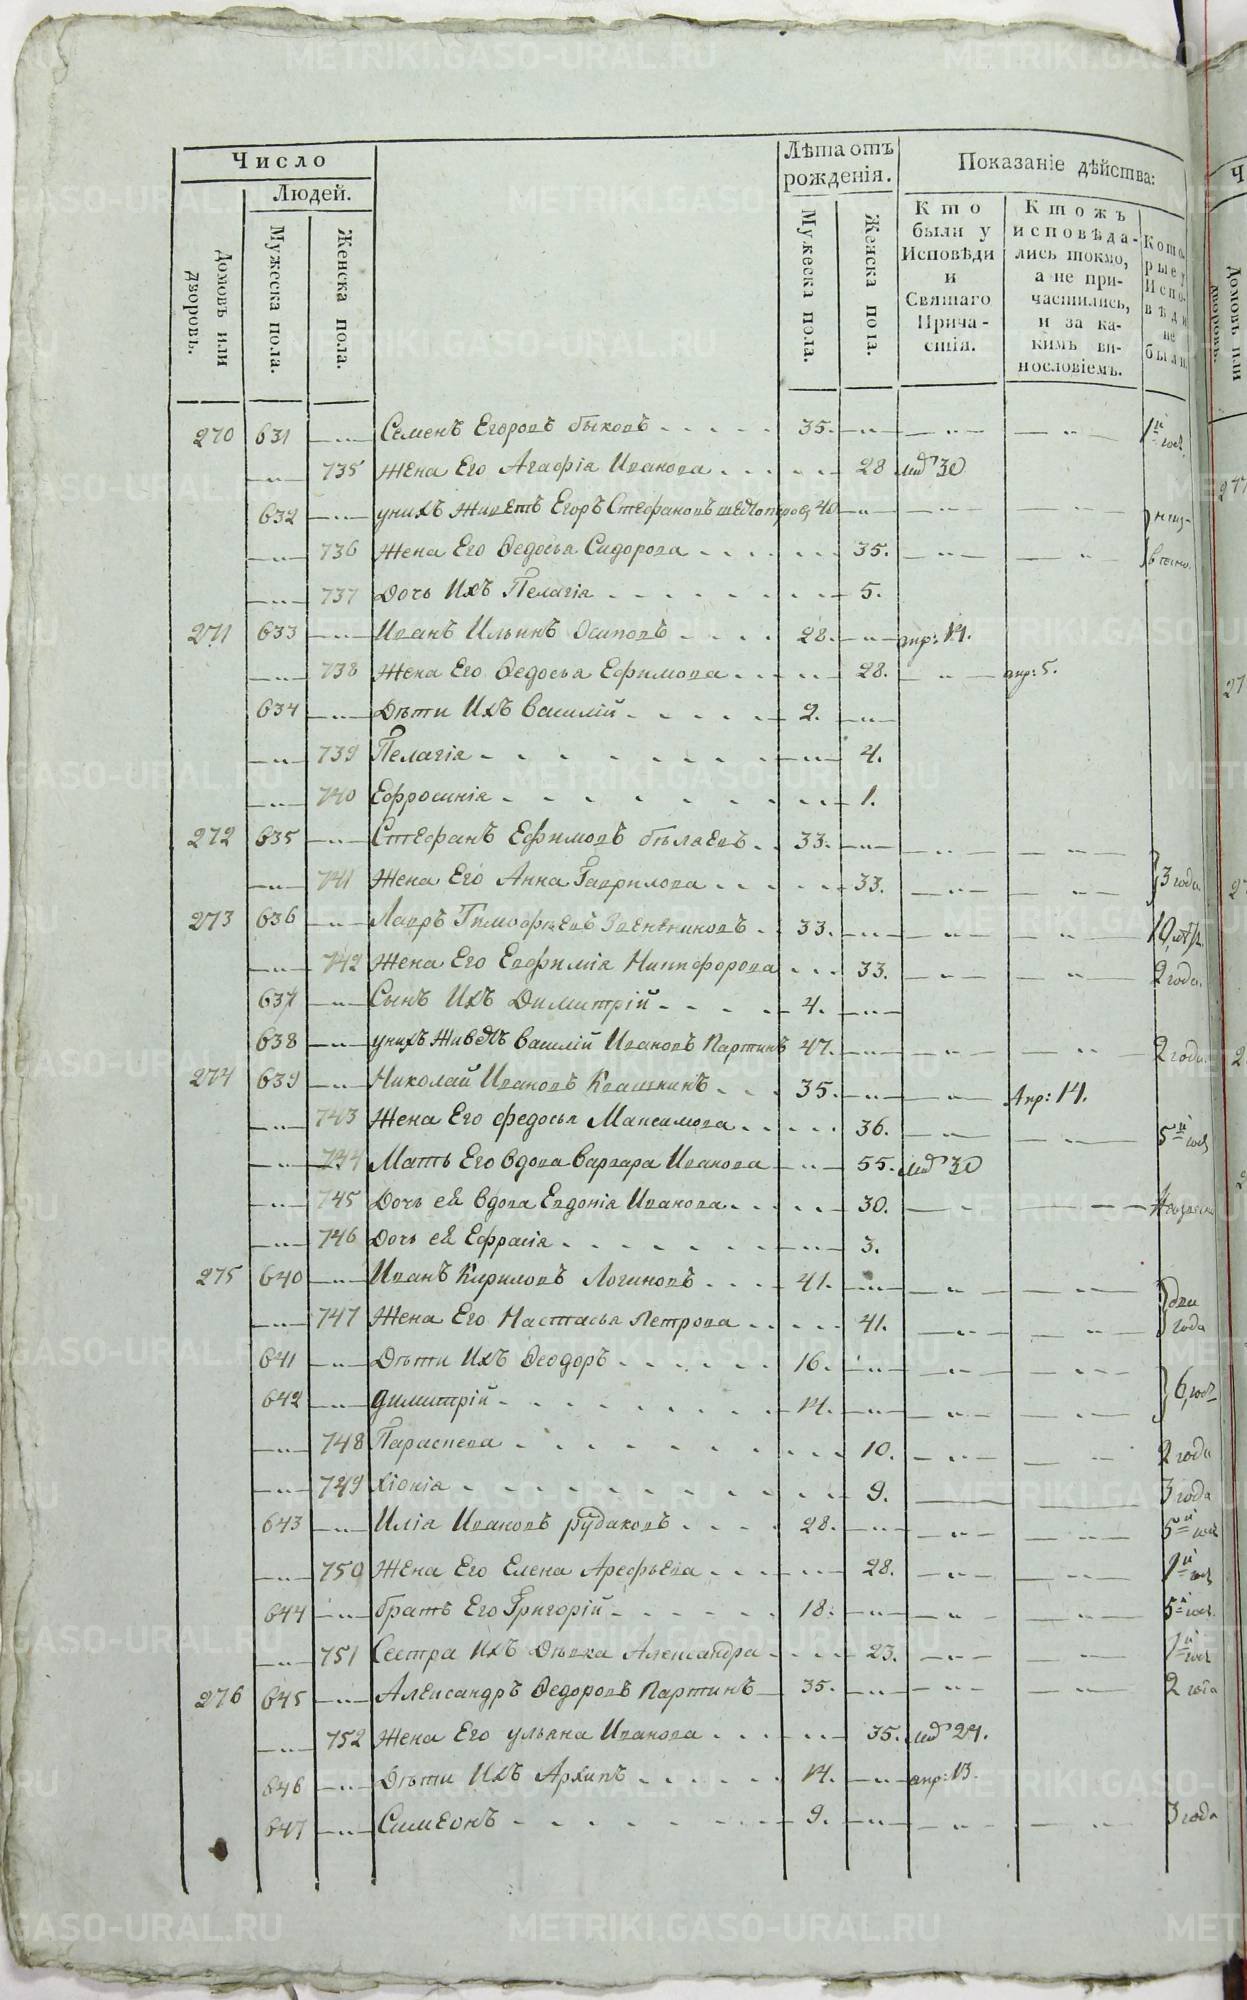 Число
Людей.
Домовъ или дворовъ.
Мужеска пола.
Женска пола.
Лѣта отъ рожденія.
Мужеска пола.
Женска пола.
Показаніе дѣйства:
Кто были у Исповѣди и Святаго Причастія.
Ктожъ исповѣдались токмо, а не причастились, и за какимъ винословіемъ.
Которые у Исповѣди не были.
270 631 —„— Семенъ Егоровъ быковъ 35. —„— —„— —„— 1й год.
—„— 735 Жена Его Агафія Иванова 28 мар 30
632 —„— унихъ Живетъ Егоръ Стефановъ 40 —„— —„—
—„— 736 Жена Его Ѳедосья Сидорова 35. —„— —„—
—„— 737 Дочь Ихъ Пелагія 5.
271 633 —„— Иванъ Ильинъ Осиповъ 28. —„— апр: 14.
—„— 738 Жена Его Ѳедосья Ефимова 28. —„— апр: 5.
634 —„— Дѣти Ихъ Василій 2. —„—
—„— 739 Пелагія —„— 4.
—„— 740 Ефросинія 1.
272 635 —„— Стефанъ Ефимовъ бѣлаевъ 33. —„— —„— —„—
—„— 741 Жена Его Анна Гаврилова 33. —„— —„— 3 года
273 636 —„— Лавръ Тимофѣевъ 33. —„— —„— —„— 10 лѣтъ
—„— 742 Жена Его Евфимія Никифорова 33. —„— —„— 2 года.
637 —„— Сынъ Ихъ Димитрій 4. —„—
638 —„— унихъ Живетъ Василій Ивановъ Партинъ 47. —„— —„— —„— 2 года.
274 639 —„— Николай Ивановъ Квашнинъ 35. —„— —„— Апр: 14.
—„— 743 Жена Его федосья Максимова 36. —„— —„— 5й год
—„— 744 Мать Его вдова Варвара Иванова —„— 55. мар 30
—„— 745 Дочь ей вдова Евдокія Иванова 30. —„— —„—
—„— 746 Дочь ей Ефрасія —„— 3.
275 640 —„— Иванъ Кириловъ Логиновъ 41. —„— —„— —„— два
—„— 747 Жена Его Настасья Петрова 41. —„— —„— года
641 —„— Дѣти Ихъ Ѳеодоръ 16. —„— —„— —„—
642 —„— димитрій 14. —„— —„— —„— 6 год
—„— 748 Параскева 10. —„— —„— 2 года
—„— 749 хіонія 9. —„— —„— 3 года
643 —„— Илія Ивановъ рудаковъ 28. —„— —„— —„— 5й год
—„— 750 Жена Его Елена Арефьева 28. —„— —„— 1й год
644 —„— братъ Его Григорій 18. —„— —„— —„— 5й год.
—„— 751 Сестра Ихъ Дѣвка Александра 23. —„— —„— 1й год
276 645 —„— Александръ Ѳедоровъ Партинъ 35. —„— —„— —„— 2 года
—„— 752 Жена Его ульяна Иванова 35. мар 24.
646 —„— Дѣти Ихъ Архипъ 14. —„— апр: 13.
647 —„— Симеонъ 9. —„— —„— —„— 3 года